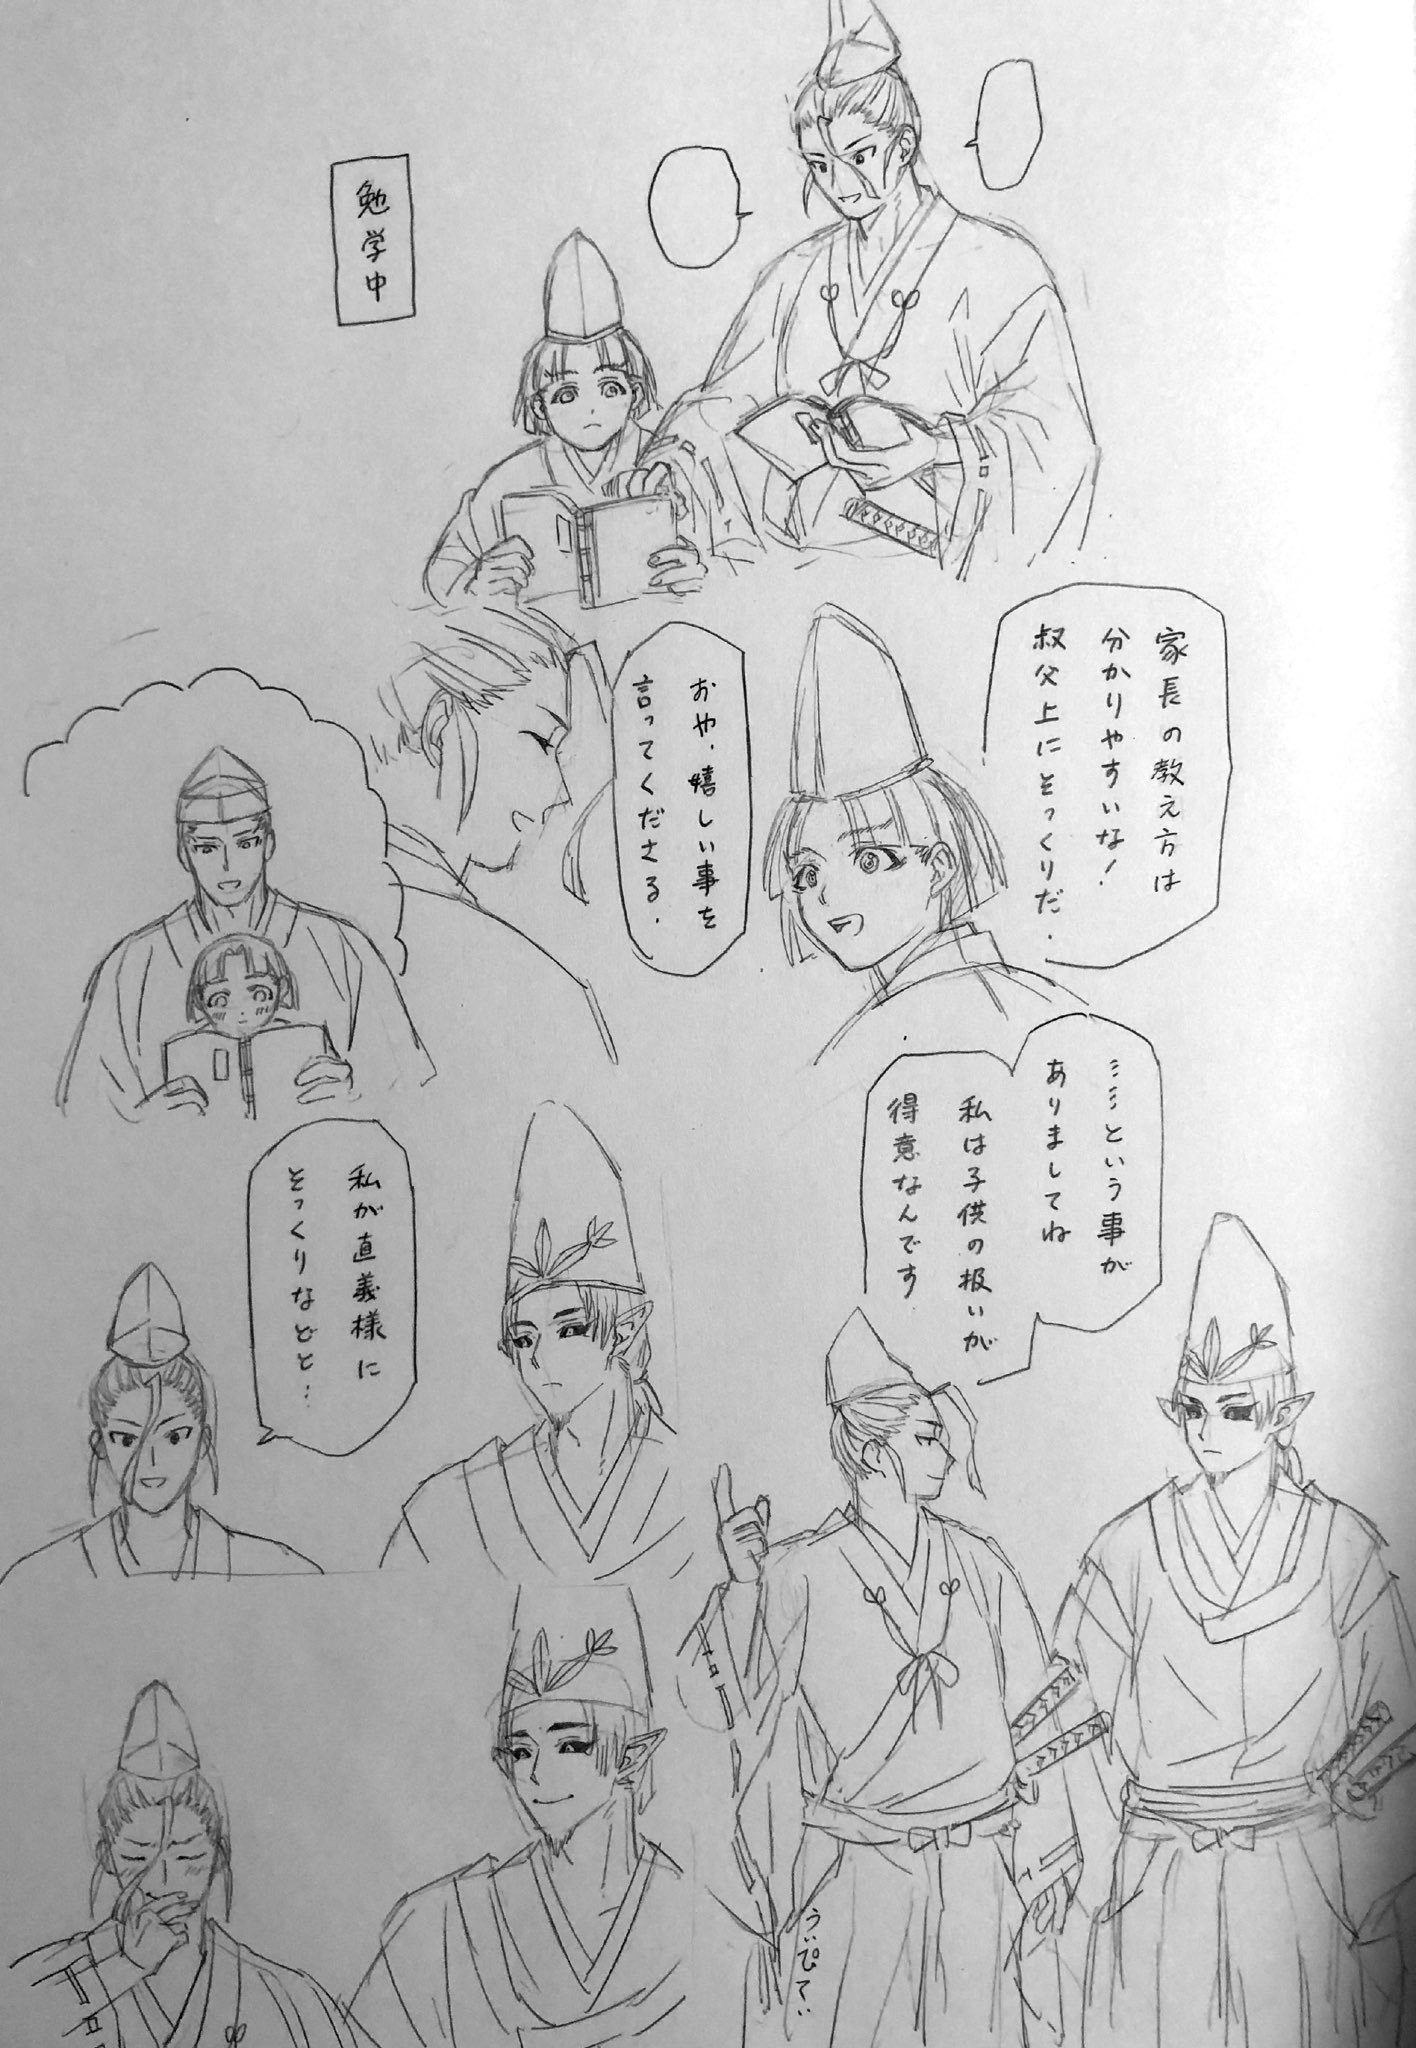 勉学中
家長の教え方は
分かりやすいな！
叔父上にそっくりだ．
おや．嬉しい事を
言ってくださる．
……という事が
ありましてね
私は子供の扱いが
得意なんです
私が直義様に
そっくりなどと…
うぃぴてぃ